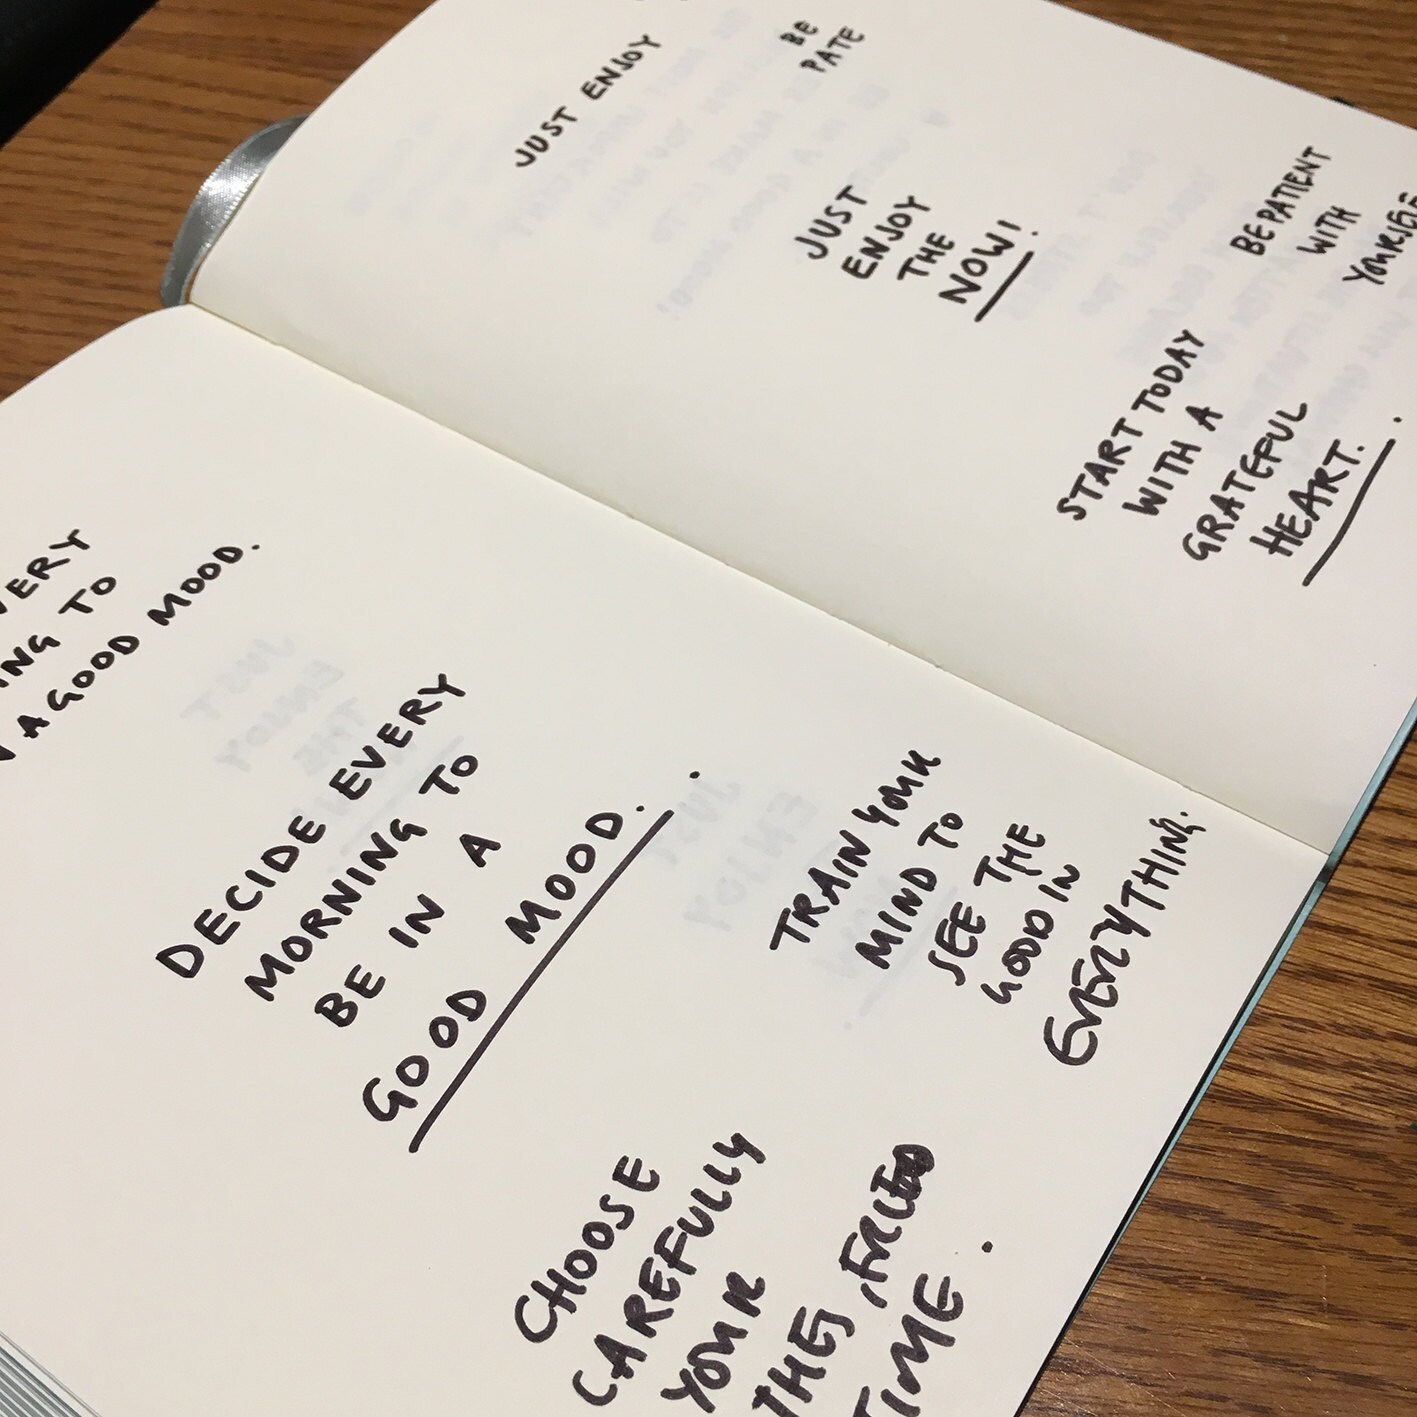 JUST ENJOY
BE
PATE
JUST
ENJOY
THE
NOW!
BE PATIENT
WITH
START TODAY
WITH A
GRATEFUL
HEART.
VERY
ING TO
A GOOD MOOD.
DECIDE EVERY
MORNING TO
BE IN A
GOOD MOOD.
TRAIN YOUR
MIND TO
SEE THE
GOOD IN
EVERYTHING.
CHOOSE
CAREFULLY
YOUR
TIME.